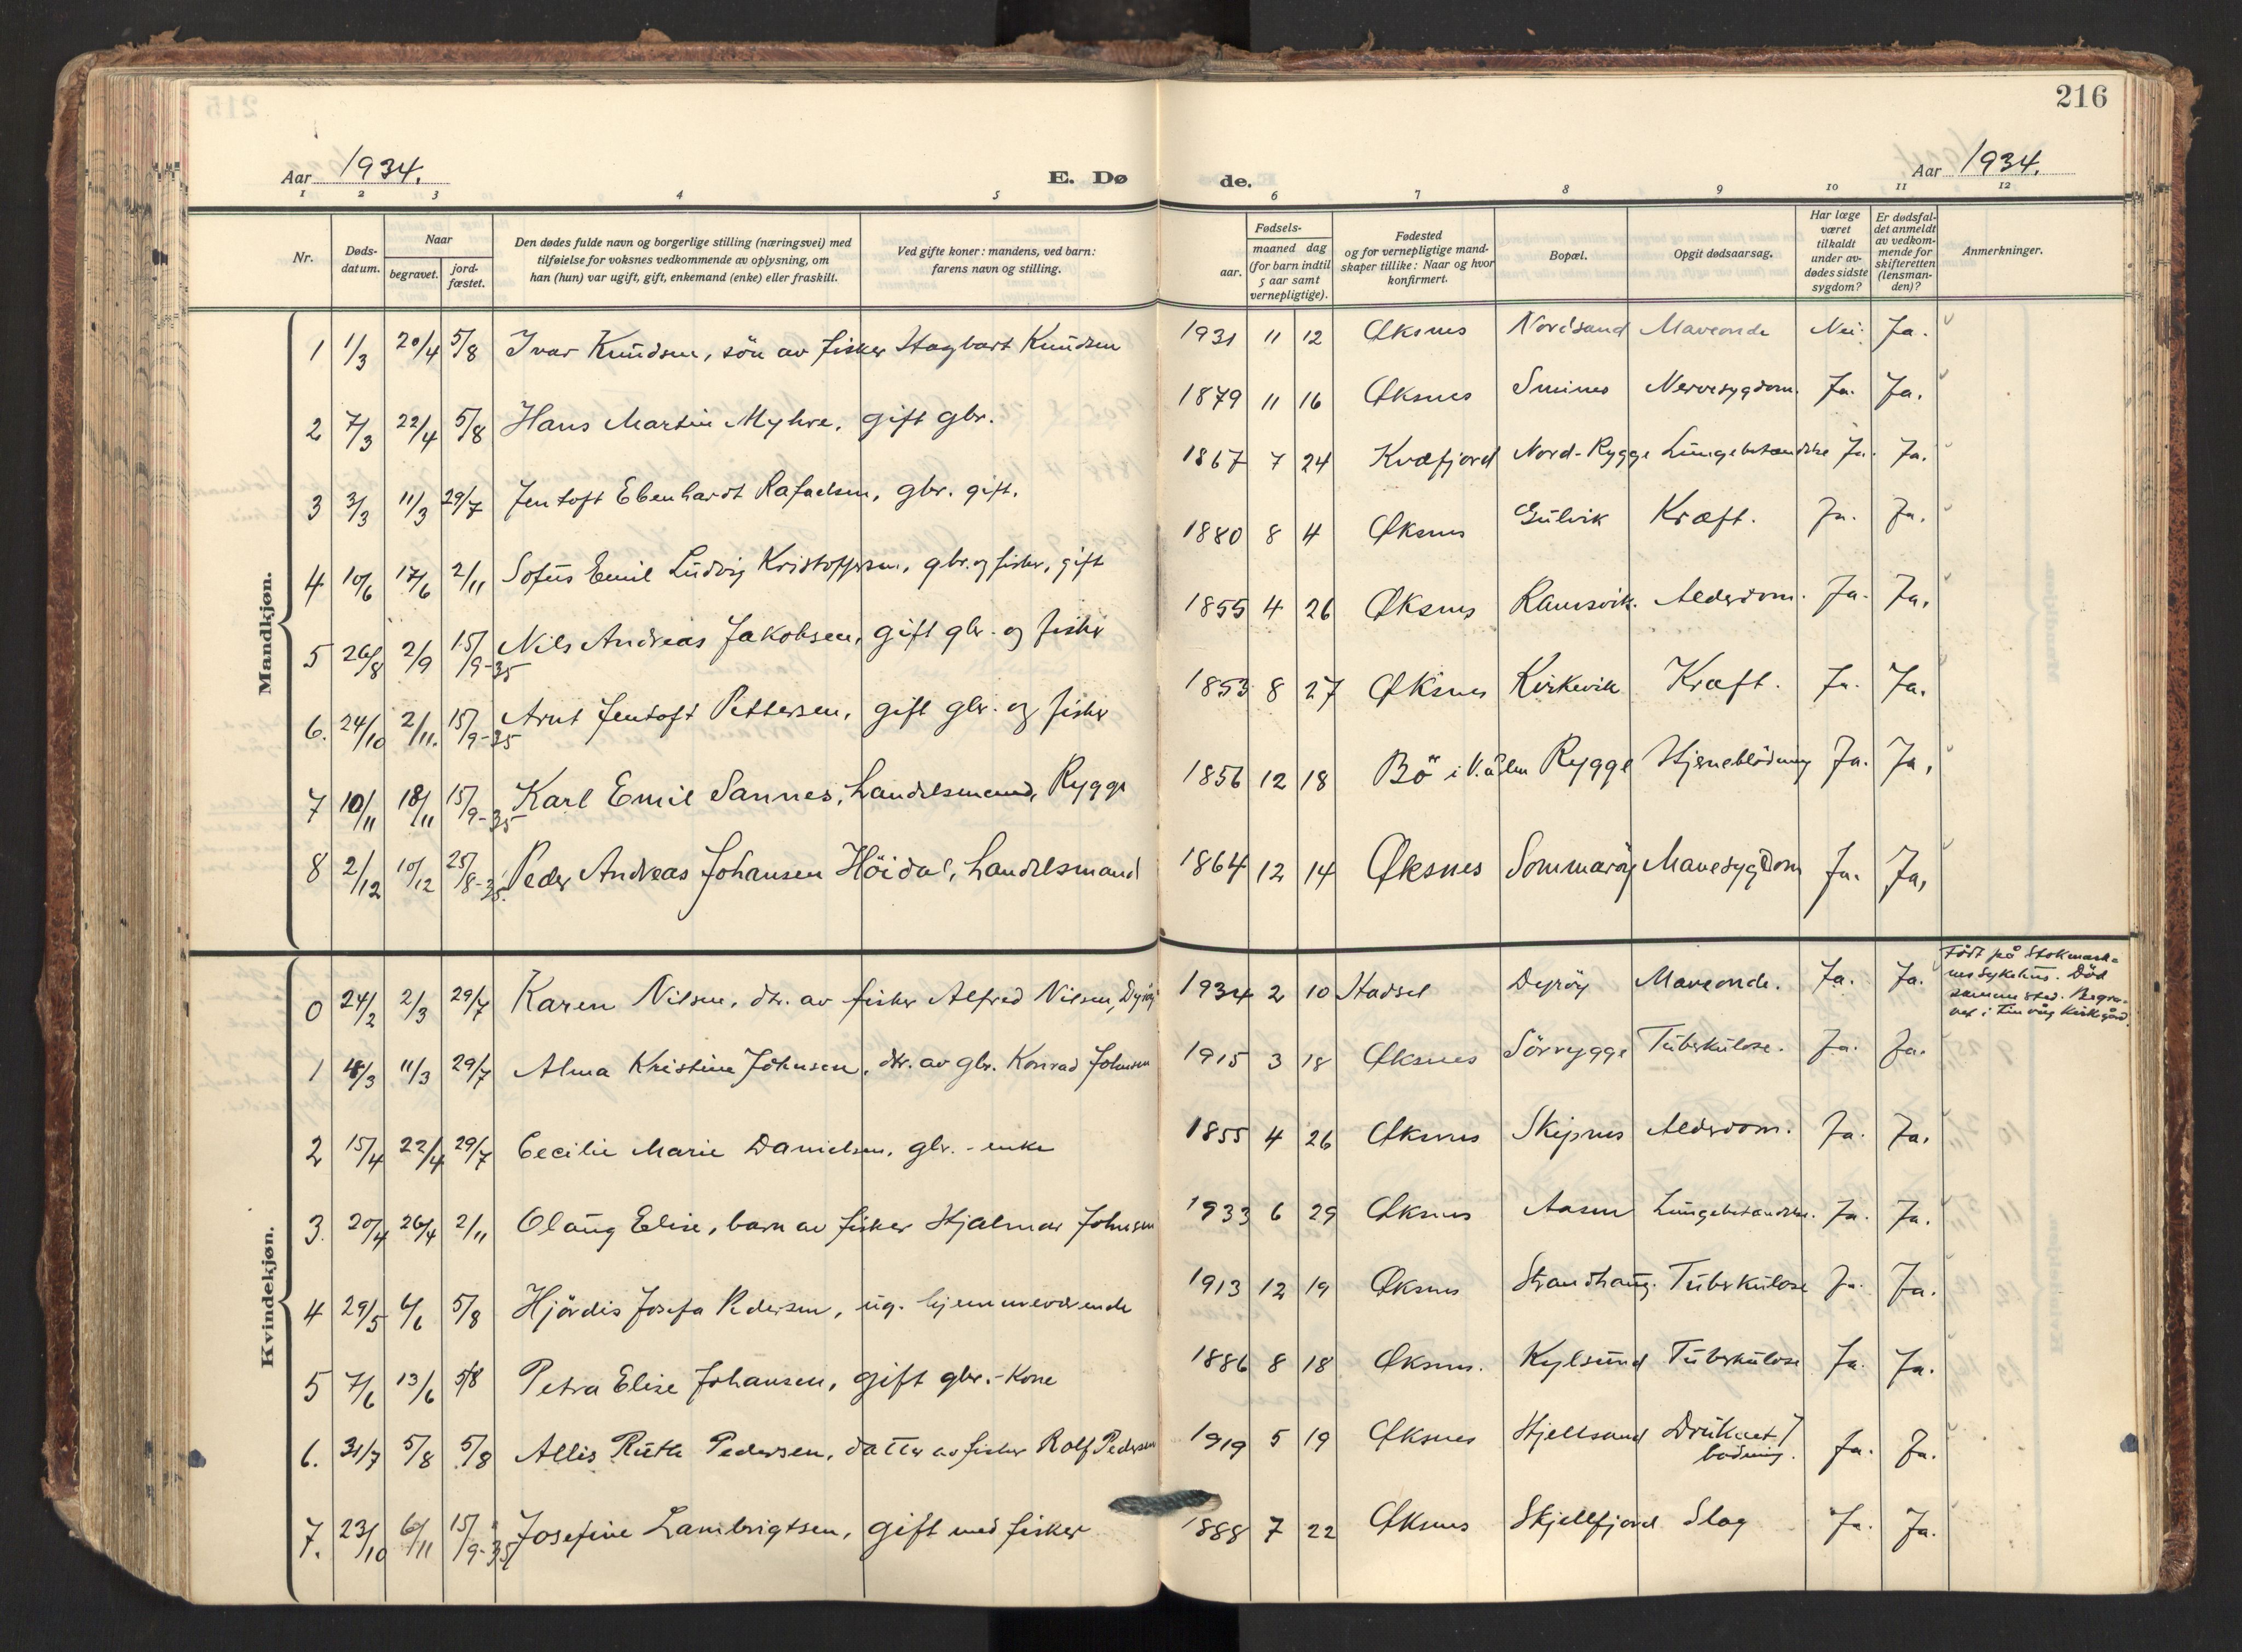 216
Aar 1934.
E. Dø de.
Aar 1934.
1 2 3 4 5 6 7 8 9 10 11 12
Nr.
Døds-datum.
Naar
begravet.
jord-fæstet.
Den dødes fulde navn og borgerlige stilling (næringsvei) med
tilføielse for voksnes vedkommende av oplysning, om
han (hun) var ugift, gift, enkemand (enke) eller fraskilt.
Ved gifte koner: mandens, ved barn:
farens navn og stilling.
Fødsels-
aar.
maaned dag
(for barn indtil
5 aar samt
vernepligtige).
Fødested
og for vernepligtige mand-
skaper tillike: Naar og hvor
konfirmert.
Bopæl.
Opgit dødsaarsag.
Har læge
været
tilkaldt
under av-
dødes sidste
sygdom?
Er dødsfal-
det anmeldt
av vedkom-
mende for
skifteretten
(lensman-
den)?
Anmerkninger.
Mandkjøn.
1 1/3 20/4 5/8 Ivar Knudsen, søn av fisker Hagbart Knudsen 1931 11 12 Øksnes Nordsand Maveonde Nei. Ja.
2 7/3 22/4 5/8 Hans Martin Myhre, gift gbr. 1879 11 16 Øksnes Smines Nervesygdom. Ja. Ja.
3 3/3 11/3 29/7 Jentoft Ebenhardt Rafaelsen, gbr. gift. 1867 7 24 Kvæfjord Nord-Rygge Lungebetændelse Ja. Ja.
4 10/6 17/6 2/11 Sofus Emil Ludvig Kristoffersen, gbr. og fisker, gift 1880 8 4 Øksnes Gulvik Kræft. Ja. Ja.
5 26/8 2/9 15/9-35 Nils Andreas Jakobsen, gift gbr. og fisker 1855 4 26 Øksnes Ramsvik. Alderdom. Ja. Ja.
6. 24/10 2/11. 15/9-35 Arnt Jentoft Pettersen, gift gbr. og fisker 1853 8 27 Øksnes Kirkevik Kræft. Ja. Ja.
7 10/11 18/11 15/9-35 Karl Emil Sannes, handelsmand, Rygge 1856 12 18 Bö i V.ålen Rygge Hjerneblödning Ja. Ja.
8 2/12 10/12 25/8-35. Peder Andreas Johansen Höidal, handelsmand 1864 12 14 Øksnes Sommaröy Mavesygdom Ja. Ja,
Kvindekjøn.
0 24/2 2/3 29/7 Karen Nilsen, dtr. av fisker Alfred Nilsen, Dyröy 1934 2 10 Hadsel Dyröy Maveonde. Ja. Ja. Födt på Stokmark-
nes Sykehus. Död
samme sted. Begra-
vet i Tinvåg Kirkegård.
1 4/3 11/3 29/7 Alma Kristine Johnsen, dtr. av gbr. Konrad Johnsen 1915 3 18 Øksnes Sörrygge Tuberkulose. Ja. Ja.
2 15/4 22/4 29/7 Cecilie Marie Danielsen, gbr.-enke 1855 4 26 Øksnes Skipnes Alderdom. Ja. Ja.
3. 20/4 26/4 2/11 Olaug Elise, barn av fisker Hjalmar Johnsen 1933 6 29 Øksnes Aasen Lungebetændelse. Ja. Ja.
4 29/5 6/6 5/8 Hjördis Josefa Pedersen, ug. hjemmeværende 1913 12 19 Øksnes Strandhaug. Tuberkulose Ja. Ja.
5 7/6 13/6 5/8 Petra Elise Johansen, gift gbr.-kone 1886 8 18 Øksnes. Kylsund Tuberkulose Ja. Ja.
6. 31/7 5/8 5/8 Allis Ruth Pedersen, datter av fisker Rolf Pedersen 1919 5 19 Øksnes Hjellsand Druknet /
badning. Ja. Ja.
7. 23/10 6/11 15/9-35 Josefine Lambrigtsen, gift med fisker 1888 7 22 Øksnes Skjellfjord Slag Ja. Ja.